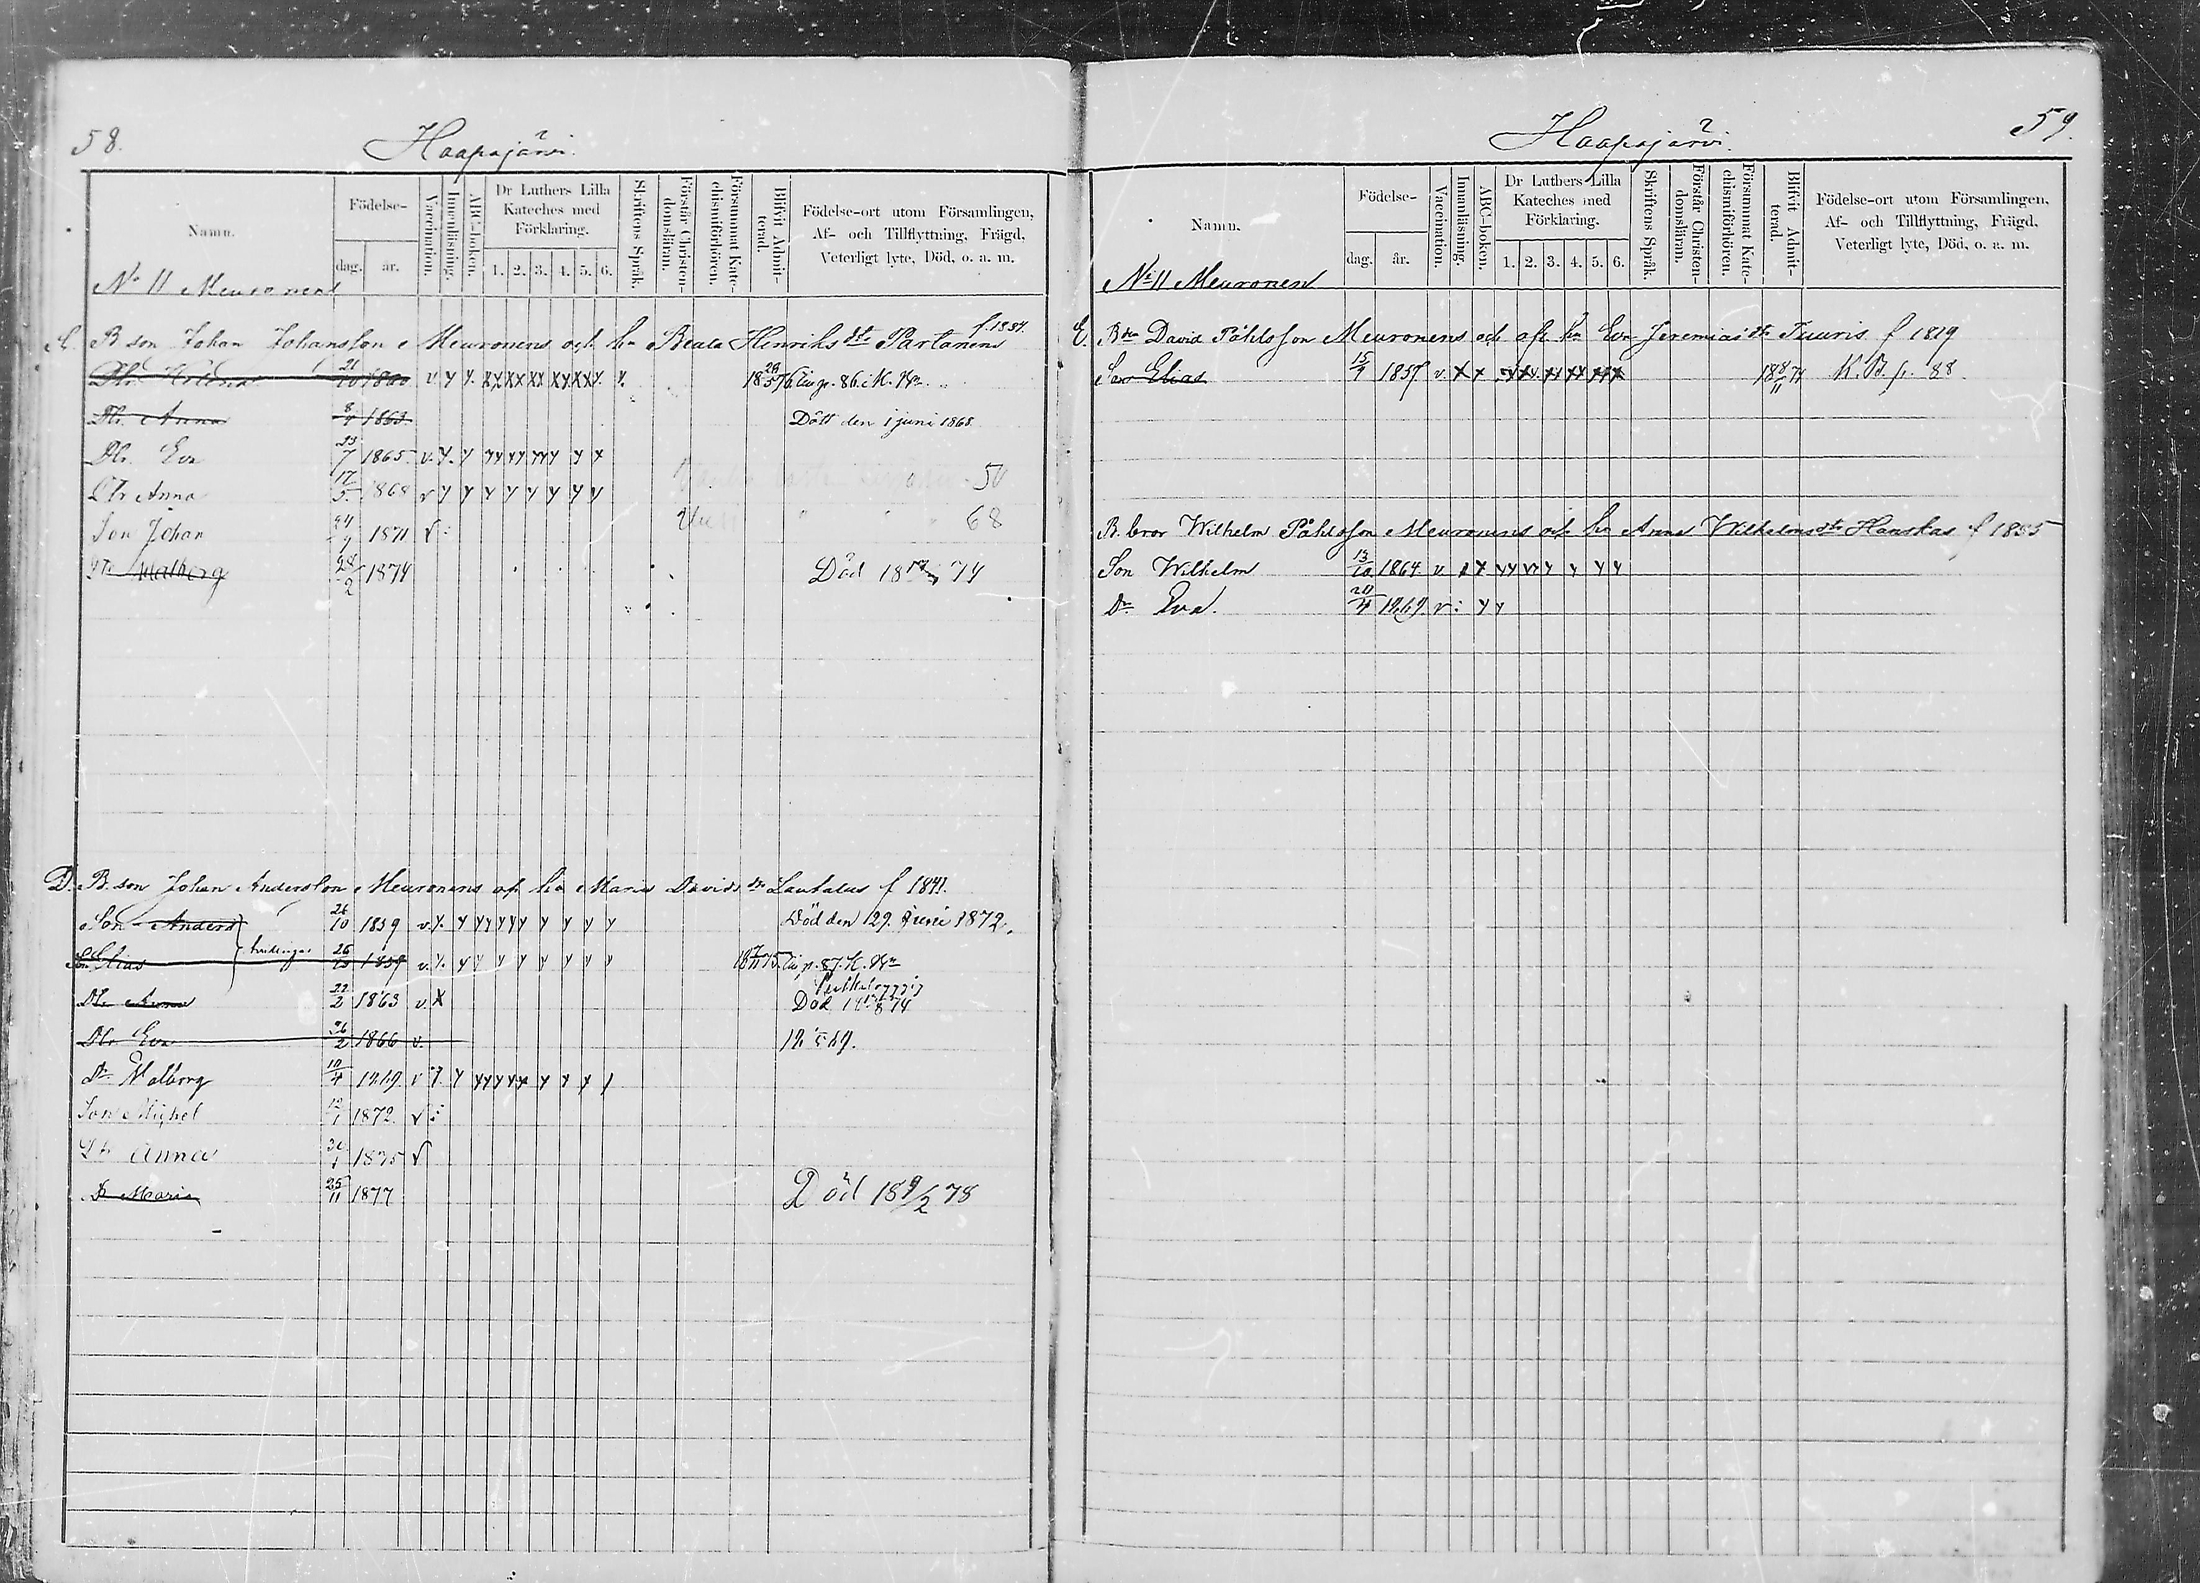 58.
Haapajärvi.
Namn.
Födelse-
dag. år.
Vaccination.
Innanläsning.
ABC-boken.
Dr Luthers Lilla Kateches med Förklaring.
1. 2. 3. 4. 5. 6.
Skriftens Språk.
Förstår Christendomsläran.
Försummat Katechismiförhören.
Blifvit Admitterad.
Födelse-ort utom Församlingen, Af- och Tillflyttning, Frägd, Veterligt lyte, Död, o. a. m.
No 11 Meuronens
B. son Johan Johansson Meuronens och hu Beata Henriksdtr Partanens f. 1834.
21/10 1860 v y y. x x x x x x x x x x y. y. p. 86. K. Bn
Dtr. Anna 8/4 1863 Dött den 1 juni 1868
Dtr. Eva 23/7 1865. v. y. y y y y y y y y y y
Dtr Anna 17/5 1868 v y y y y y y y y 50
Son Johan 24/7 1871 v: 68
Dtr Walborg 28/2 1874 Död 18 74
D. B. son Johan Andersson Meuronens och hu Maria Davidsdtr Lauhalus f 1841.
Son Anders 26/10 1859 v. y. y y y y y y y y y y Död den 29. Juni 1872.
Son Elias 26/10 1859 v. y. y y y y y y y p. 87. K. Bn
Dtr. Anna 22/2 1863 v. x Död 74
Dtr. Eva 26/2 1866 v.
Dtr. Walborg 10/4 1869 v y. y y y y y y y y y y
Son Michel 1872. v:
Dtr Anna 1875 v
Dr Maria 25/11 1877 Död 18 9/2 78
59.
Haapajärvi.
Namn.
Födelse-
dag. år.
Vaccination.
Innanläsning.
ABC-boken.
Dr Luthers Lilla Kateches med Förklaring.
1. 2. 3. 4. 5. 6.
Skriftens Språk.
Förstår Christendomsläran.
Försummat Katechismiförhören.
Blifvit Admitterad.
Födelse-ort utom Församlingen, Af- och Tillflyttning, Frägd, Veterligt lyte, Död, o. a. m.
No 11 Meuronens
E. Bdn David Påhlsson Meuronens och afl. hu Eva Jeremiasdtr Tuuris f 1819
Son Elias 15/7 1857 v. x x 18 8/11 74 K. B. p. 88.
B. bror Wilhelm Påhlsson Meuronens och hu Anna Wilhelmsdtr Hanskas f 1835
Son Wilhelm 13/10 1864. v y y y y y y y y y y
Dr Eva. 20/4 1869. v: y y